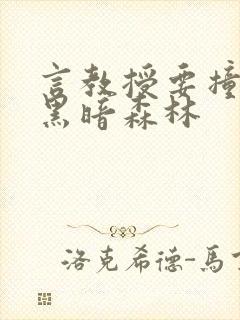 言教授要撞
黑暗森林
洛克希德-馬丁